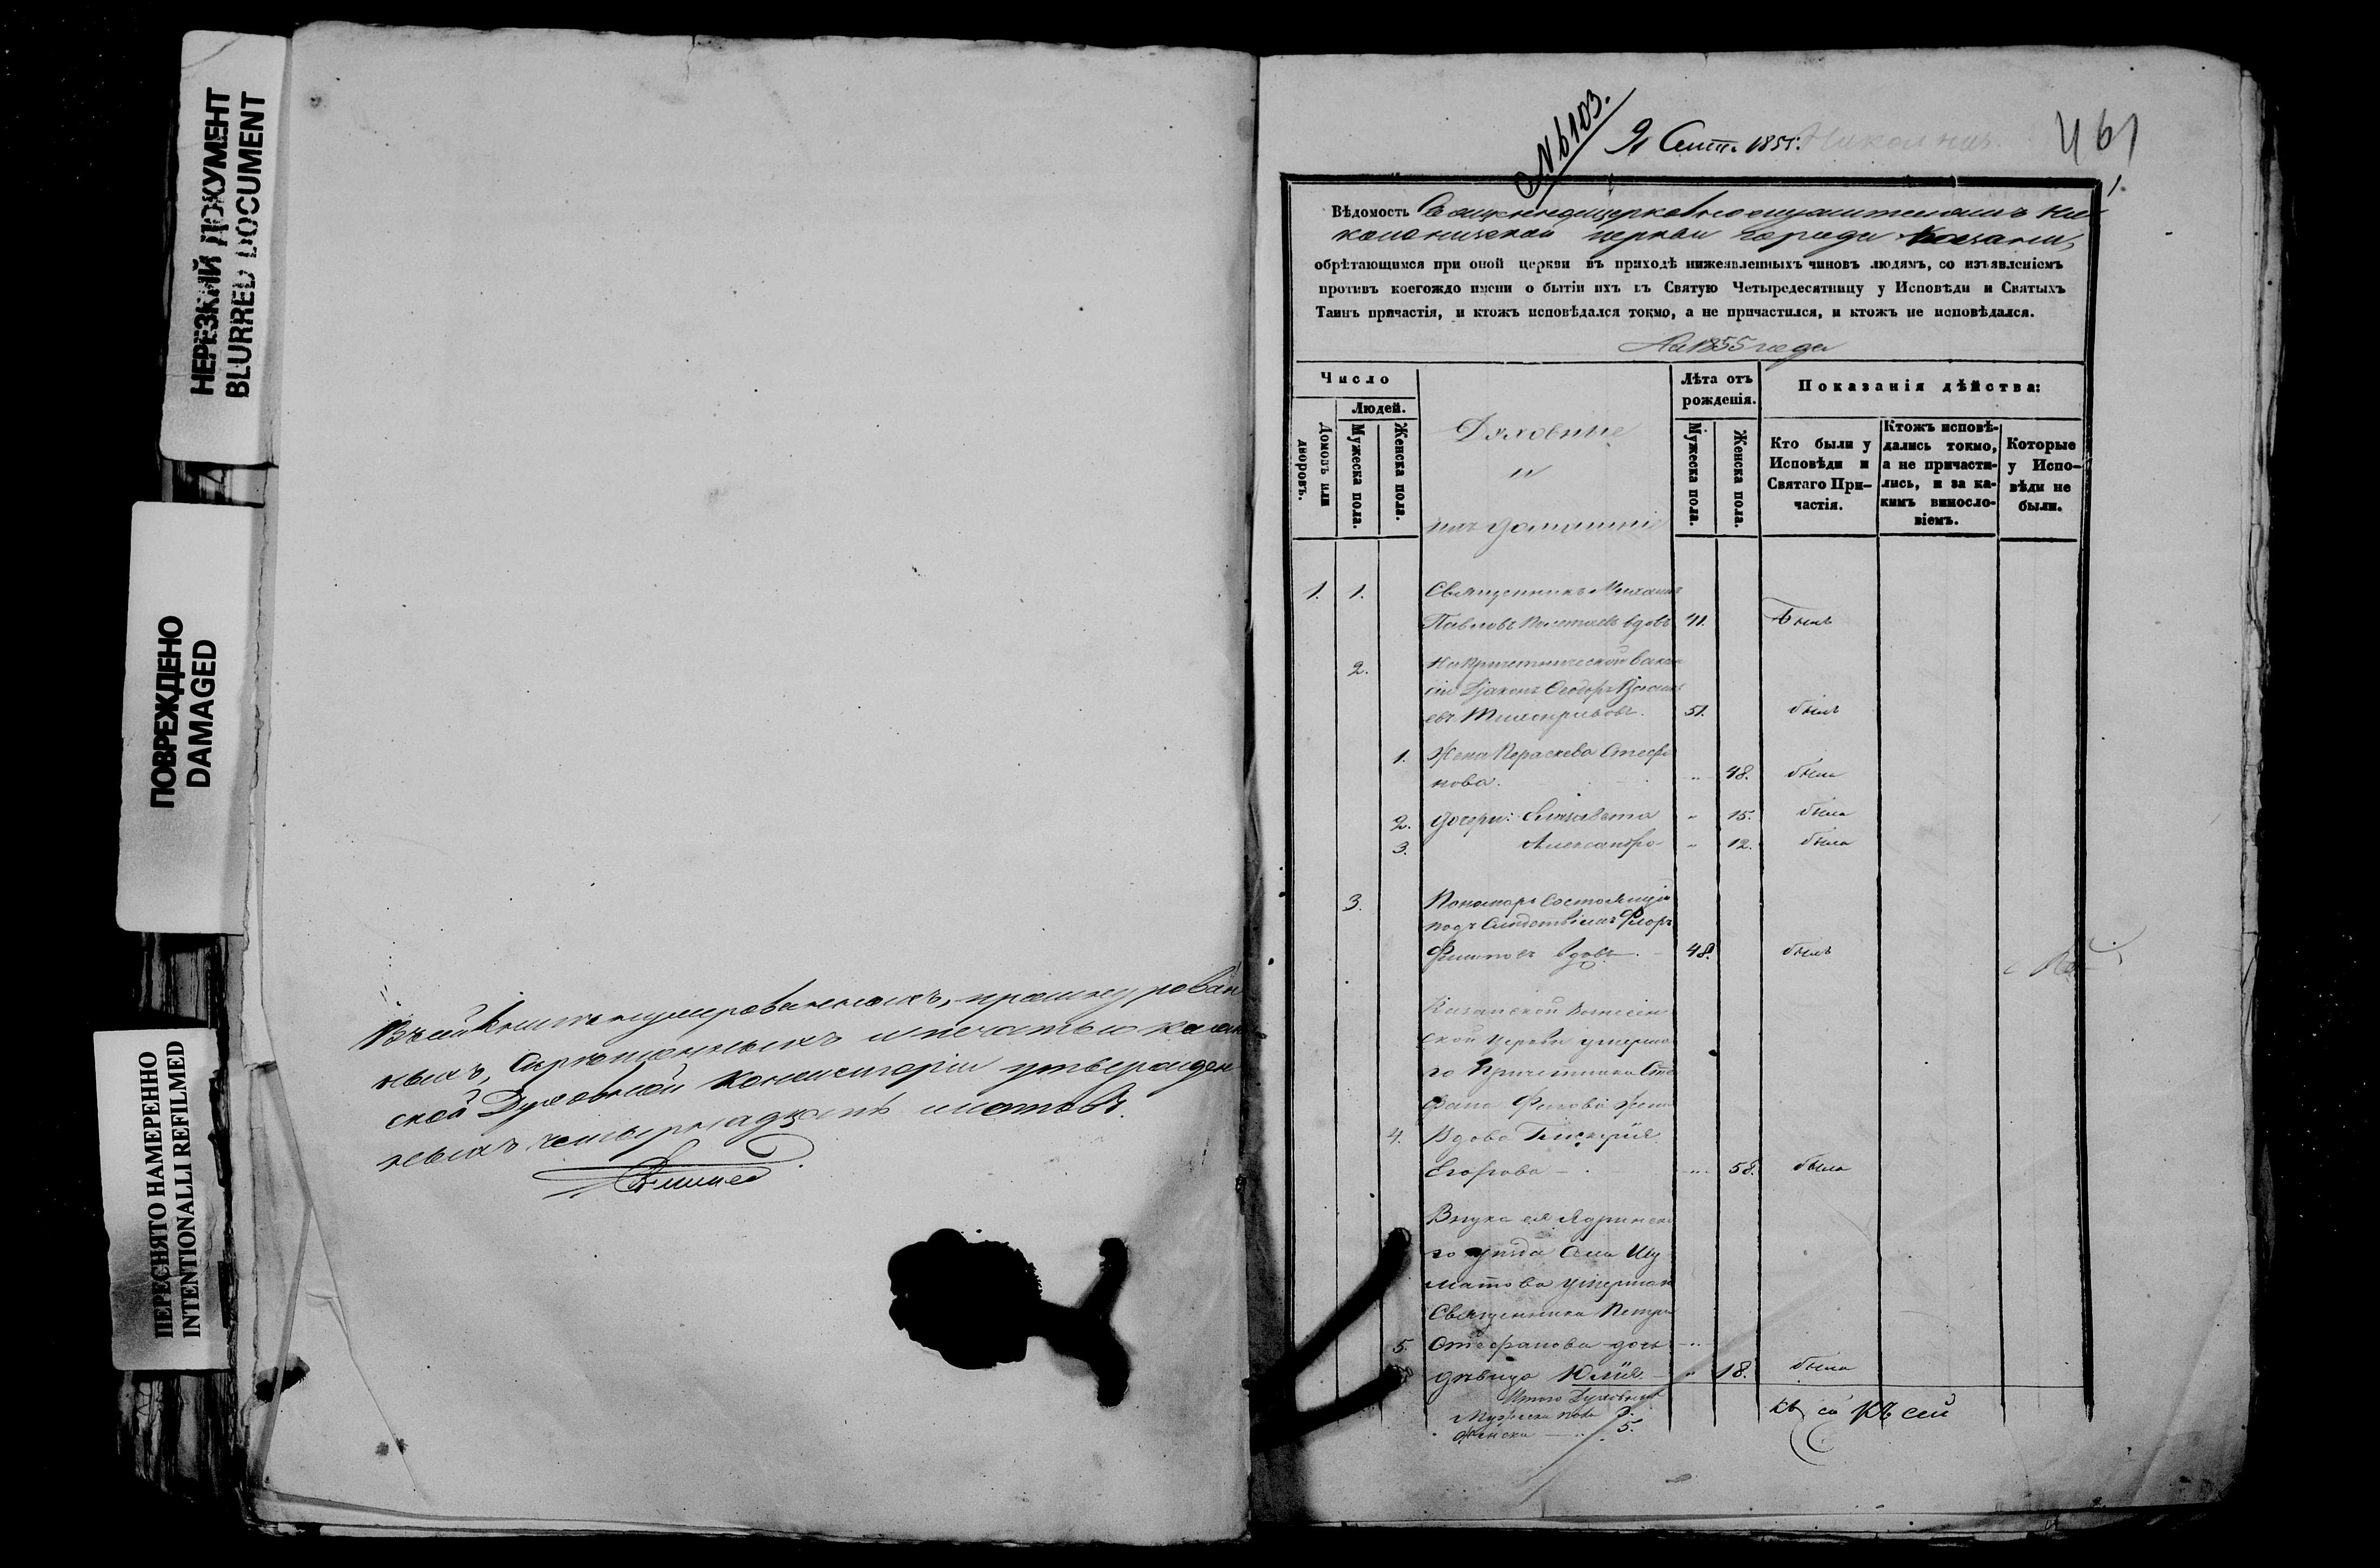 НЕРЕЗКИЙ ДОКУМЕНТ
BLURRED DOCUMENT
ПОВРЕЖДЕНО
DAMAGED
ПЕРЕСНЯТО НАМЕРЕННО
INTENTIONALLI REFILMED
Въ сей книге нумерованныхъ, прошнурован
ныхъ, скрепленныхъ и печатью казан
ской Духовной Консисторіи утвержден
ныхъ четырнадцать листовъ.
№ 6103.
9 Сент. 1855.
461
1.
Вѣдомость
церкви города Казани,
обрѣтающимся при оной церкви въ приходѣ нижеявленныхъ чиновъ людямъ, со изъявленіемъ
противъ коегождо имени о бытіи ихъ въ Святую Четыредесятницу у Исповѣди и Святыхъ
Таинъ причастія, и ктожъ исповѣдался токмо, а не причастился, и ктожъ не исповѣдался.
На 1855 года
Число
Людей.
Домовъ или дворовъ.
Мужеска пола.
Женска пола.
Духовные
и
ихъ домашніе
Лѣта отъ рожденія.
Мужеска пола.
Женска пола.
Показанія дѣйства:
Кто были у Исповѣди и Святаго При- частія.
Ктожъ исповѣ- дались токмо, а не причасти- лись, и за ка- кимъ винословіемъ.
Которые у Испо- вѣди не были.
1. 1. Священникъ Михаилъ
Павловъ вдовъ 41. Былъ
2. На Причетнической вакан
сіи Діаконъ Ѳеодоръ Васильевъ
51. былъ
1. Жена Параскева Стефа
нова. 48. была
2. Дочери: Елизавета 15. была
3. Александра 12. была
3. Пономарь состоящій
подъ Следствіемъ Флоръ
Филиповъ вдовъ 48. былъ
Казанской Вознесен
ской Церкви умерша
го Причетника Сте
фана жена
4. Вдова Гликерія
Егорова 58. была
Внука ея Ядринска
го уезда села Шу
матова умершаго
Священника Петра
5. Стефанова дочь
девица Юлія 18. была
Итого Духовныхъ
Мужеска пола 3.
Женска 5.